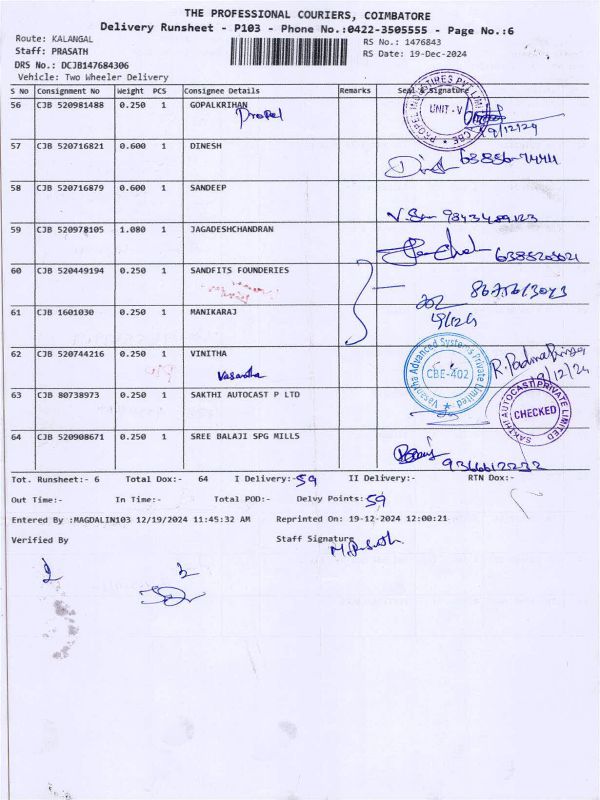 THE PROFESSIONAL COURIERS, COIMBATORE
Delivery Runsheet - P103 - Phone No.:0422-3505555 - Page No.:6
Route: KALANGAL
RS No.: 1476843
Staff: PRASATH
RS Date: 19-Dec-2024
DRS No.: DCJB147684306
Vehicle: Two Wheeler Delivery
S No Consignment No Weight PCS Consignee Details Remarks Seal & Signature
56 CJB 520981488 0.250 1 GOPALKRIHAN
Propel
UNIT - V
19/12/24
57 CJB 520716821 0.600 1 DINESH
58 CJB 520716879 0.600 1 SANDEEP
59 CJB 520978105 1.080 1 JAGADESHCHANDRAN
60 CJB 520449194 0.250 1 SANDFITS FOUNDERIES
61 CJB 1601030 0.250 1 MANIKARAJ
62 CJB 520744216 0.250 1 VINITHA
Vasantha
Vasantha Advanced Systems Private Limited
CBE-402
19/12/24
63 CJB 80738973 0.250 1 SAKTHI AUTOCAST P LTD
SAKTHI AUTOCAST PRIVATE LIMITED
CHECKED
64 CJB 520908671 0.250 1 SREE BALAJI SPG MILLS
Tot. Runsheet:- 6 Total Dox:- 64 I Delivery:- 59 II Delivery:- RTN Dox:-
Out Time:- In Time:- Total POD:- Delvy Points: 59
Entered By :MAGDALIN103 12/19/2024 11:45:32 AM Reprinted On: 19-12-2024 12:00:21
Verified By Staff Signature
M. Prasath